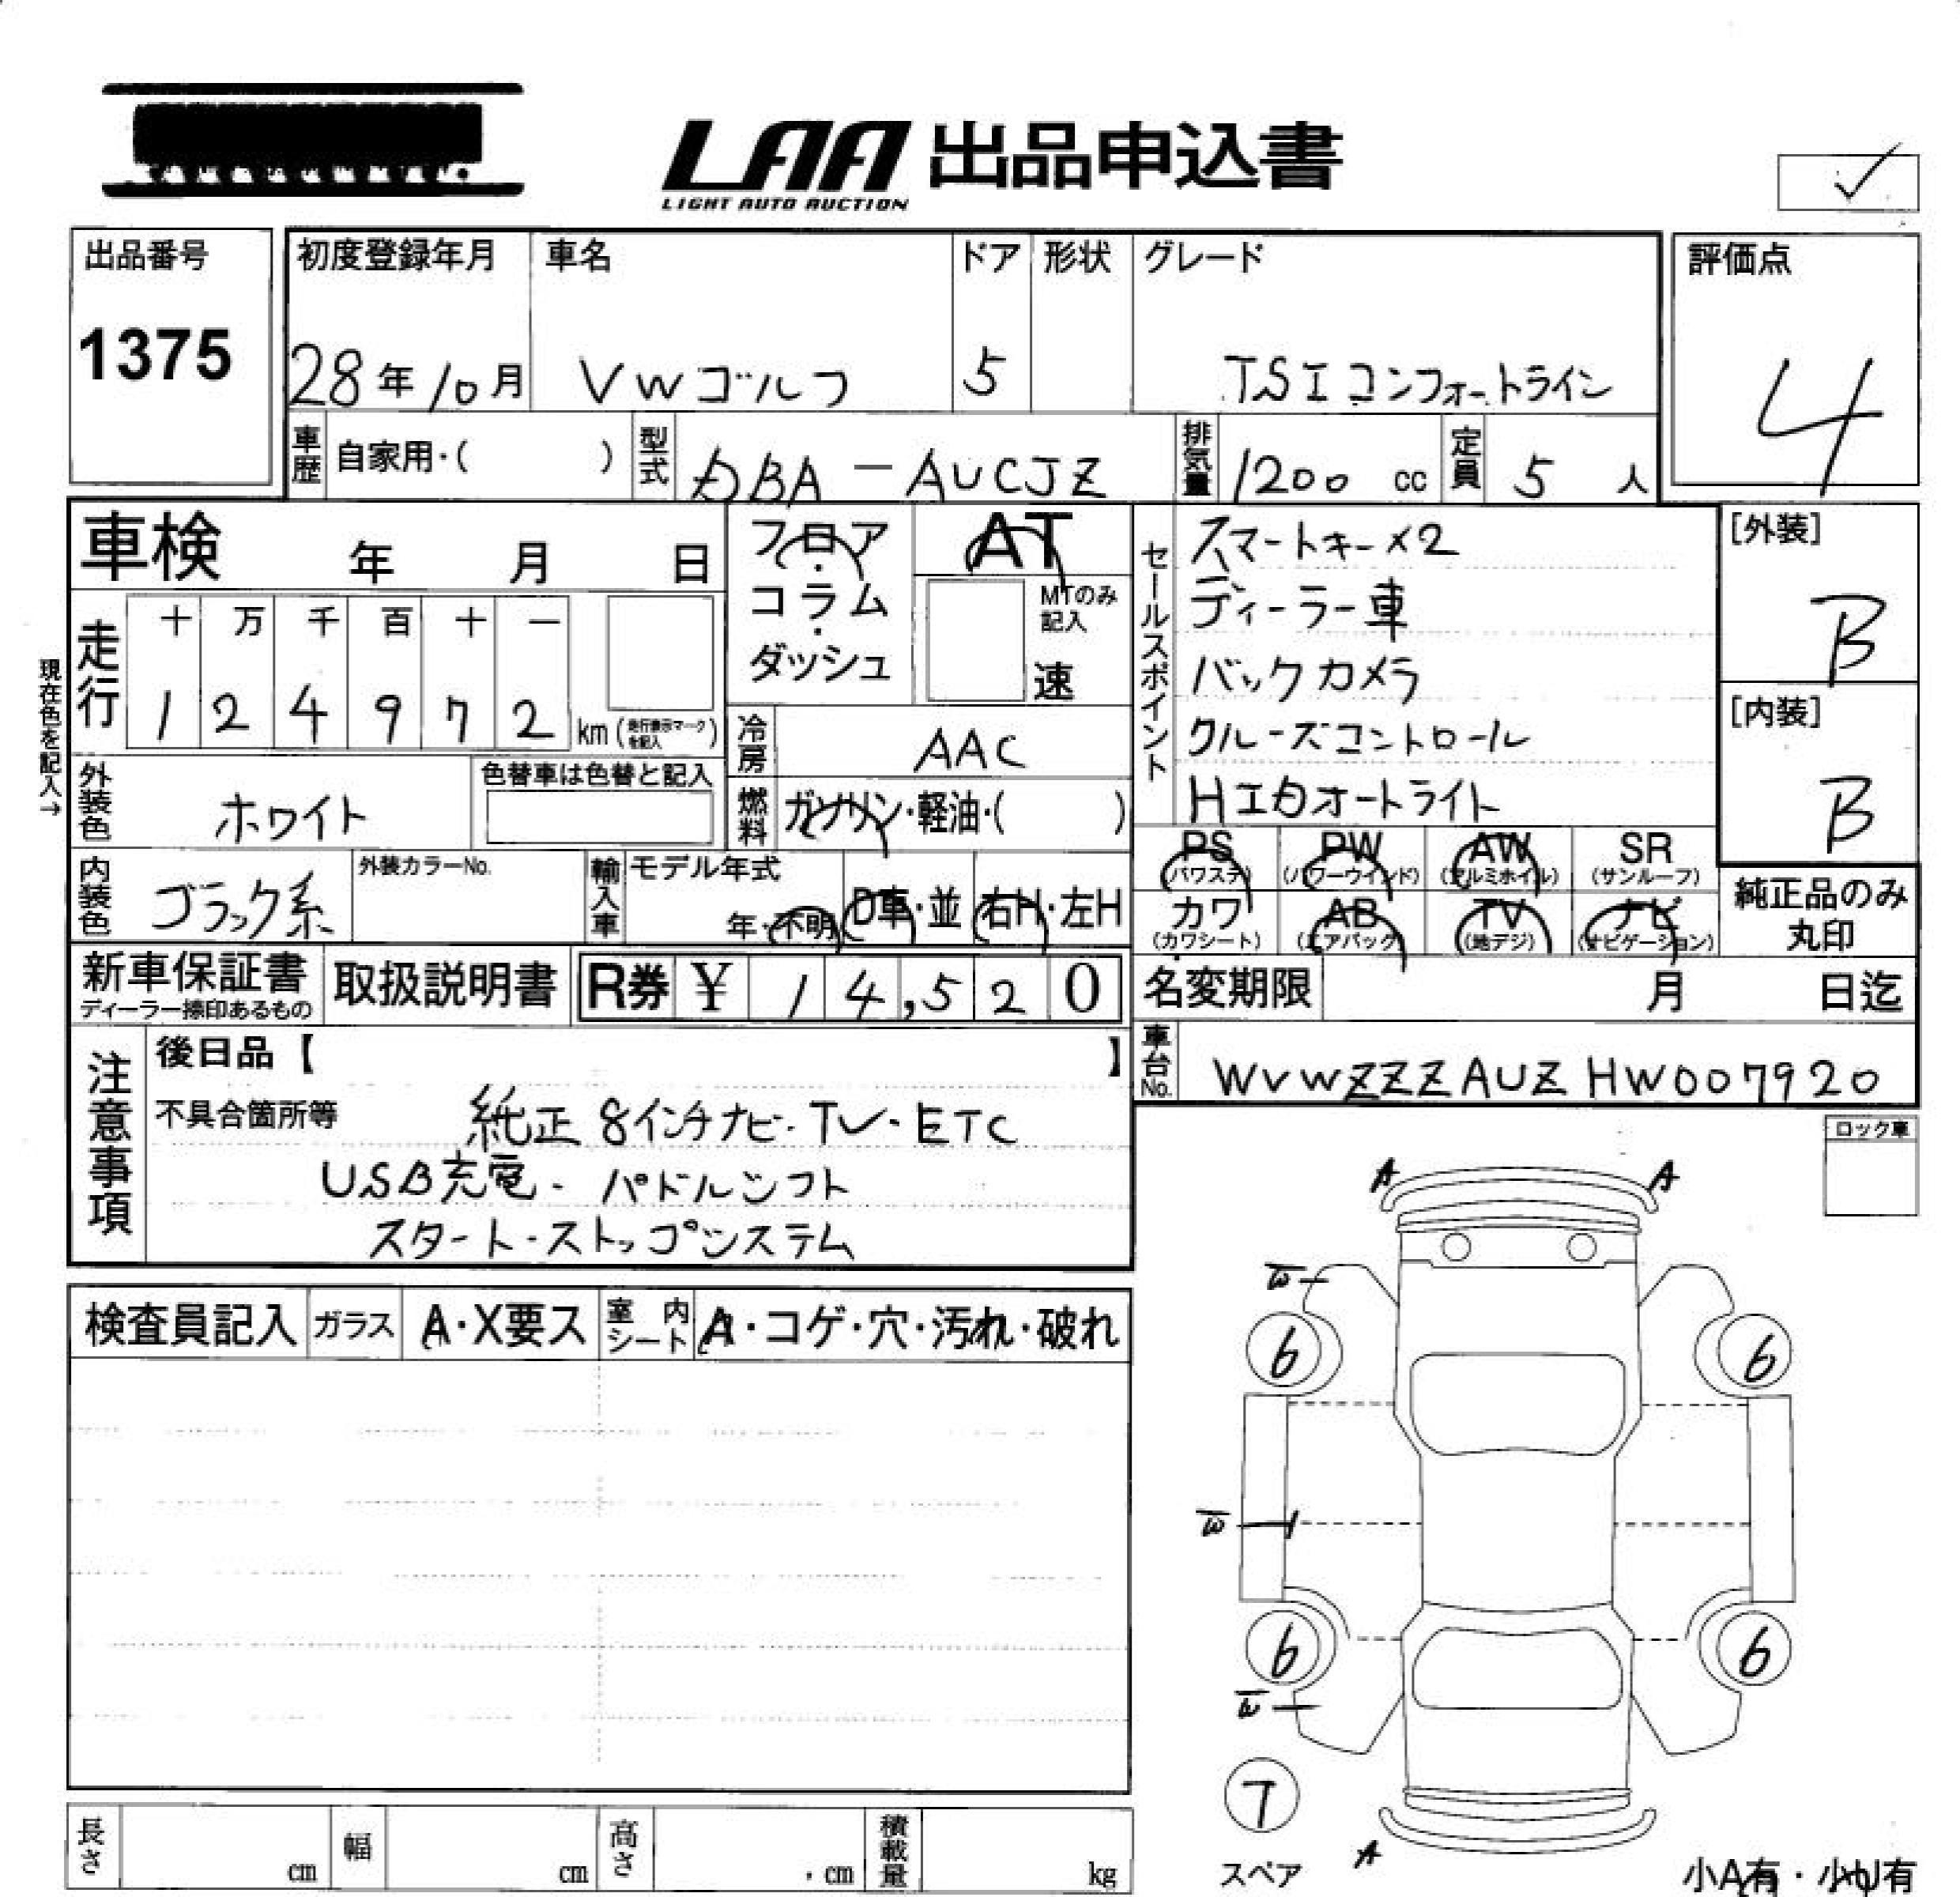 LAA 出品申込書
LIGHT AUTO AUCTION
出品番号
1375
初度登録年月
28年10月
車名
VWゴルフ
ドア
5
形状
グレード
TSIコンフォートライン
評価点
4
車歴 自家用・( )
型式 DBA-AUCJZ
排気量 1200 cc
定員 5 人
車検 年 月 日
フロア・コラム・ダッシュ
AT
MTのみ記入
速
セールスポイント
スマートキー×2
ディーラー車
バックカメラ
クルーズコントロール
HID オートライト
[外装]
B
[内装]
B
現在色を記入→
走行
十 万 千 百 十 一
1 2 4 9 7 2 km(走行表示マークを記入)
冷房 AAC
外装色 ホワイト
色替車は色替と記入
燃料 ガソリン・軽油・( )
内装色 ブラック系
外装カラーNo.
輸入車 モデル年式
年・不明 D車・並 右H・左H
PS (パワステ)
PW (パワーウインド)
AW (アルミホイル)
SR (サンルーフ)
カワ (カワシート)
AB (エアバック)
TV (地デジ)
ナビ (ナビゲーション)
純正品のみ
丸印
新車保証書
ディーラー捺印あるもの
取扱説明書
R券 ¥ 14,520
名変期限 月 日迄
車台No. WVWZZZAUZHW007920
注意事項
後日品【 】
不具合箇所等 純正8インチナビ・TV・ETC
USB充電・パドルシフト
スタート・ストップシステム
ロック車
A A
W
6 6
W
6 6
W
7
スペア
A
小A有・小U有
検査員記入 ガラス A・X要ス 室内シート A・コゲ・穴・汚れ・破れ
長さ cm 幅 cm 高さ cm 積載量 kg